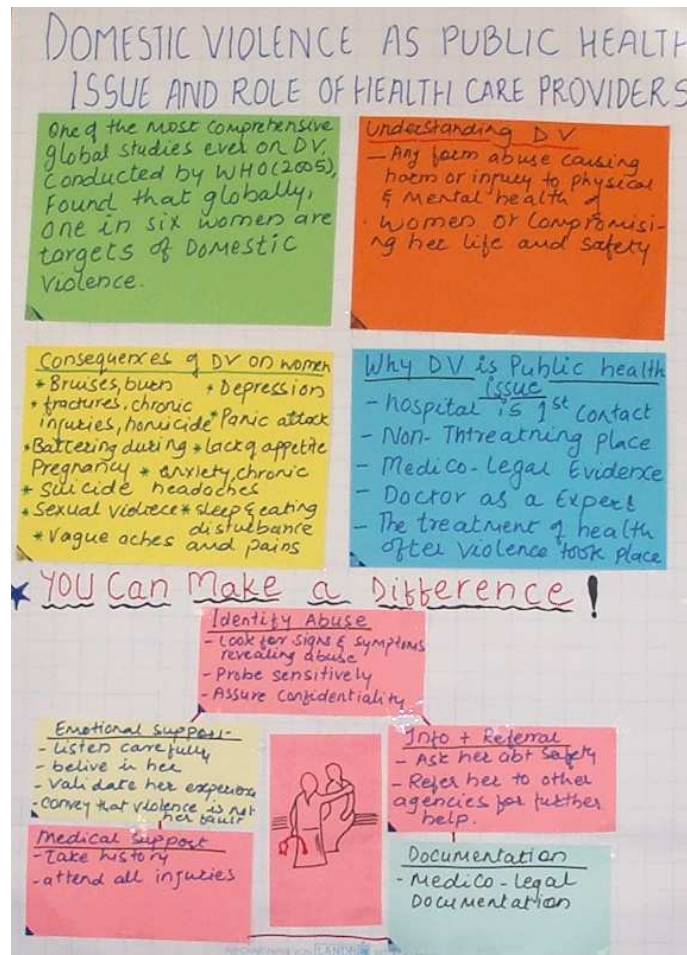 DOMESTIC VIOLENCE AS PUBLIC HEALTH
ISSUE AND ROLE OF HEALTH CARE PROVIDERS
One of the most comprehensive
global studies ever on DV,
Conducted by WHO (2005),
Found that globally,
one in six women are
targets of Domestic
Violence.
Understanding DV
- Any form abuse causing
harm or injury to physical
& Mental health of
women or compromisi-
ng her life and safety
Consequences of DV on women
* Bruises, burn
* fractures, chronic
injuries, homicide
* Battering during
Pregnancy
* Suicide
* Sexual violece
* Vague aches and pains
* Depression
* Panic attack
* lack of appetite
* anxiety, chronic
headaches
* sleep & eating
disturbance
Why DV is Public health
issue
- hospital is 1st contact
- Non-Thtreatning place
- Medico-Legal Evidence
- Doctor as a Expert
- The treatment of health
after violence took place
YOU Can Make a Difference!
Identify Abuse
- Look for signs & symptoms
revealing abuse
- Probe sensitively
- Assure confidentiality
Emotional support-
- listen carefully
- belive in her
- validate her experience
- convey that violence is not
her fault
Medical support
- Take history
- attend all injuries
Info + Referral
- Ask her abt safety
- Refer her to other
agencies for further
help.
Documentation
- Medico-Legal
Documentation